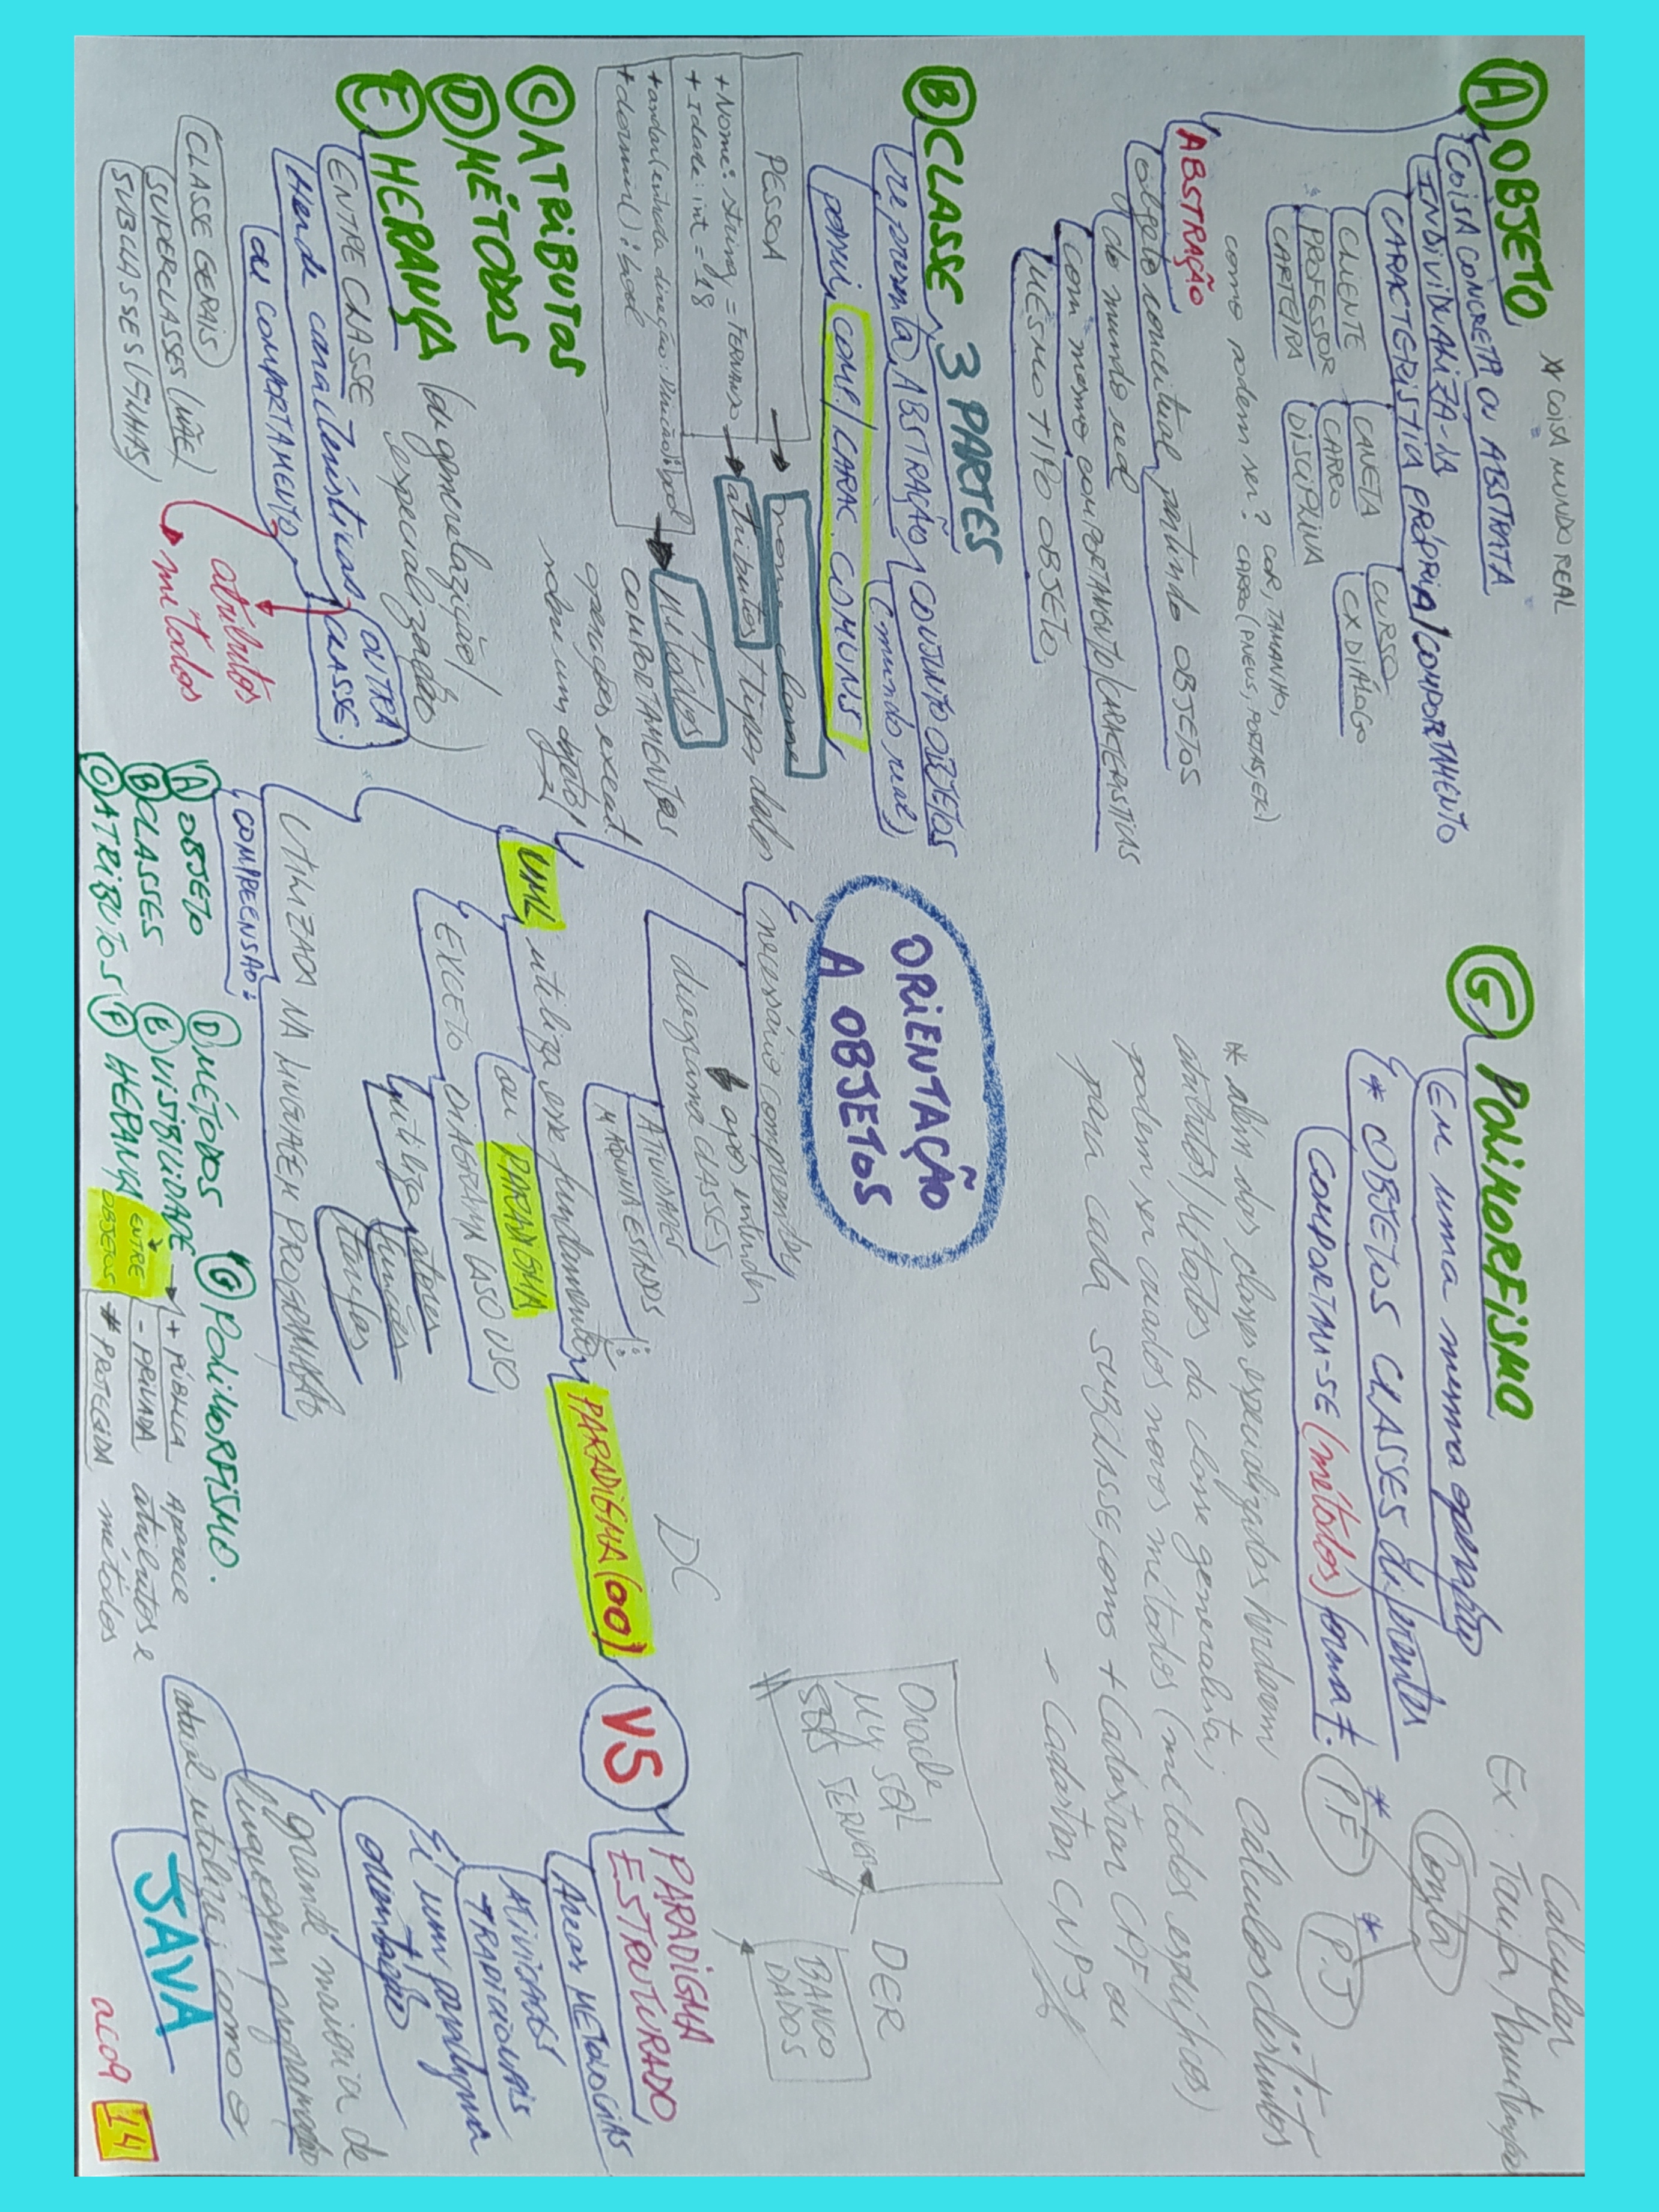 * COISA MUNDO REAL
A OBJETO
COISA CONCRETA OU ABSTRATA
INDIVIDUALIZÁ-LA
CARACTERISTICA PRÓPRIA/COMPORTAMENTO
CLIENTE
PROFESSOR
CARTEIRA
CANETA
CARRO
DISCIPLINA
CURSO
CX DIÁLOGO
como podem ser? COR, TAMANHO,
CARRO (PNEUS, PORTAS, ETC)
ABSTRAÇÃO
objeto conceitual partindo OBJETOS
do mundo real
com mesmo COMPORTAMENTO/CARACTERISTICAS
MESMO TIPO OBJETO
B CLASSE 3 PARTES
representa ABSTRAÇÃO CONJUNTO OBJETOS
(mundo real)
possui COMP./CARAC. COMUNS
PESSOA
nome classe
+Nome: string = FERNANDO
+ Idade: int = 18
atributos / tipos dados
+andar(entrada direção: Direção): bool
+dormir(): bool
métodos
COMPORTAMENTOS
operações execut.
sobre um objeto
C ATRIBUTOS
D MÉTODOS
E HERANÇA (ou generelazição/
especialização)
ENTRE CLASSE
Herde características OUTRA
CLASSE.
ou COMPORTAMENTO
atributos
métodos
CLASSE GERAIS
SUPERCLASSES (MÃE)
SUBCLASSES (FILHAS)
G POLIMORFISMO
Em uma mesma operação
* OBJETOS CLASSES diferentes
COMPORTAM-SE (métodos) forma ≠.
Calcular
Ex: Tarifa Manutenção
Conta
* P.F
* P.J
Cálculos distintos
* além das classes especializadas herdarem
atributos/Métodos da classe generalista;
podem ser criados novos métodos (métodos específicos)
para cada SUBCLASSE, como + Cadastrar CPF ou
- Cadastrar CNPJ
ORIENTAÇÃO
A OBJETOS
necessário compreender
após entender
diagrama CLASSES
ATIVIDADES
MÁQUINA ESTADOS
UML utiliza esse fundamento
ou PARADIGMA
EXCETO DIAGRAMA CASO USO
utiliza atores
funções
tarefas
UTILIZADA NA LINGUAGEM PROGRAMAÇÃO
COMPREENSÃO:
A OBJETO
B CLASSES
C ATRIBUTOS
D MÉTODOS
E VISIBILIDADE
ENTRE
OBJETOS
F HERANÇA
G POLIMORFISMO.
+ PÚBLICA
- PRIVADA
# PROTEGIDA
Aparece
atributos e
métodos
DC
PARADIGMA (OO)
VS
PARADIGMA
ESTRUTURADO
Oracle
My SQL
SERVER
DER
BANCO
DADOS
Áreas METOLOGIAS
ATIVIDADES
TRADICIONAIS
É um paradigma
orientação
grande maioria de
linguagem programação
atual utiliza, como o
JAVA
aco9 14